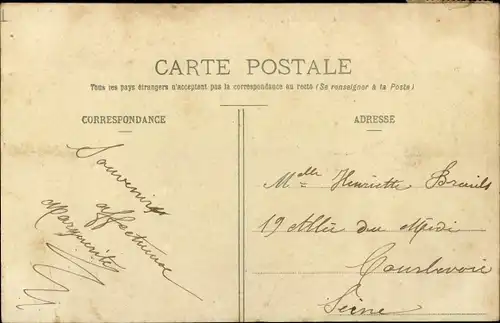 CARTE POSTALE
Tous les pays étrangers n'acceptent pas la correspondance au recto (Se renseigner à la Poste)
CORRESPONDANCE
ADRESSE
Souvenir
affectueux
Marguerite
Melle Henriette
19 Allée du Midi
Courbevoie
Seine